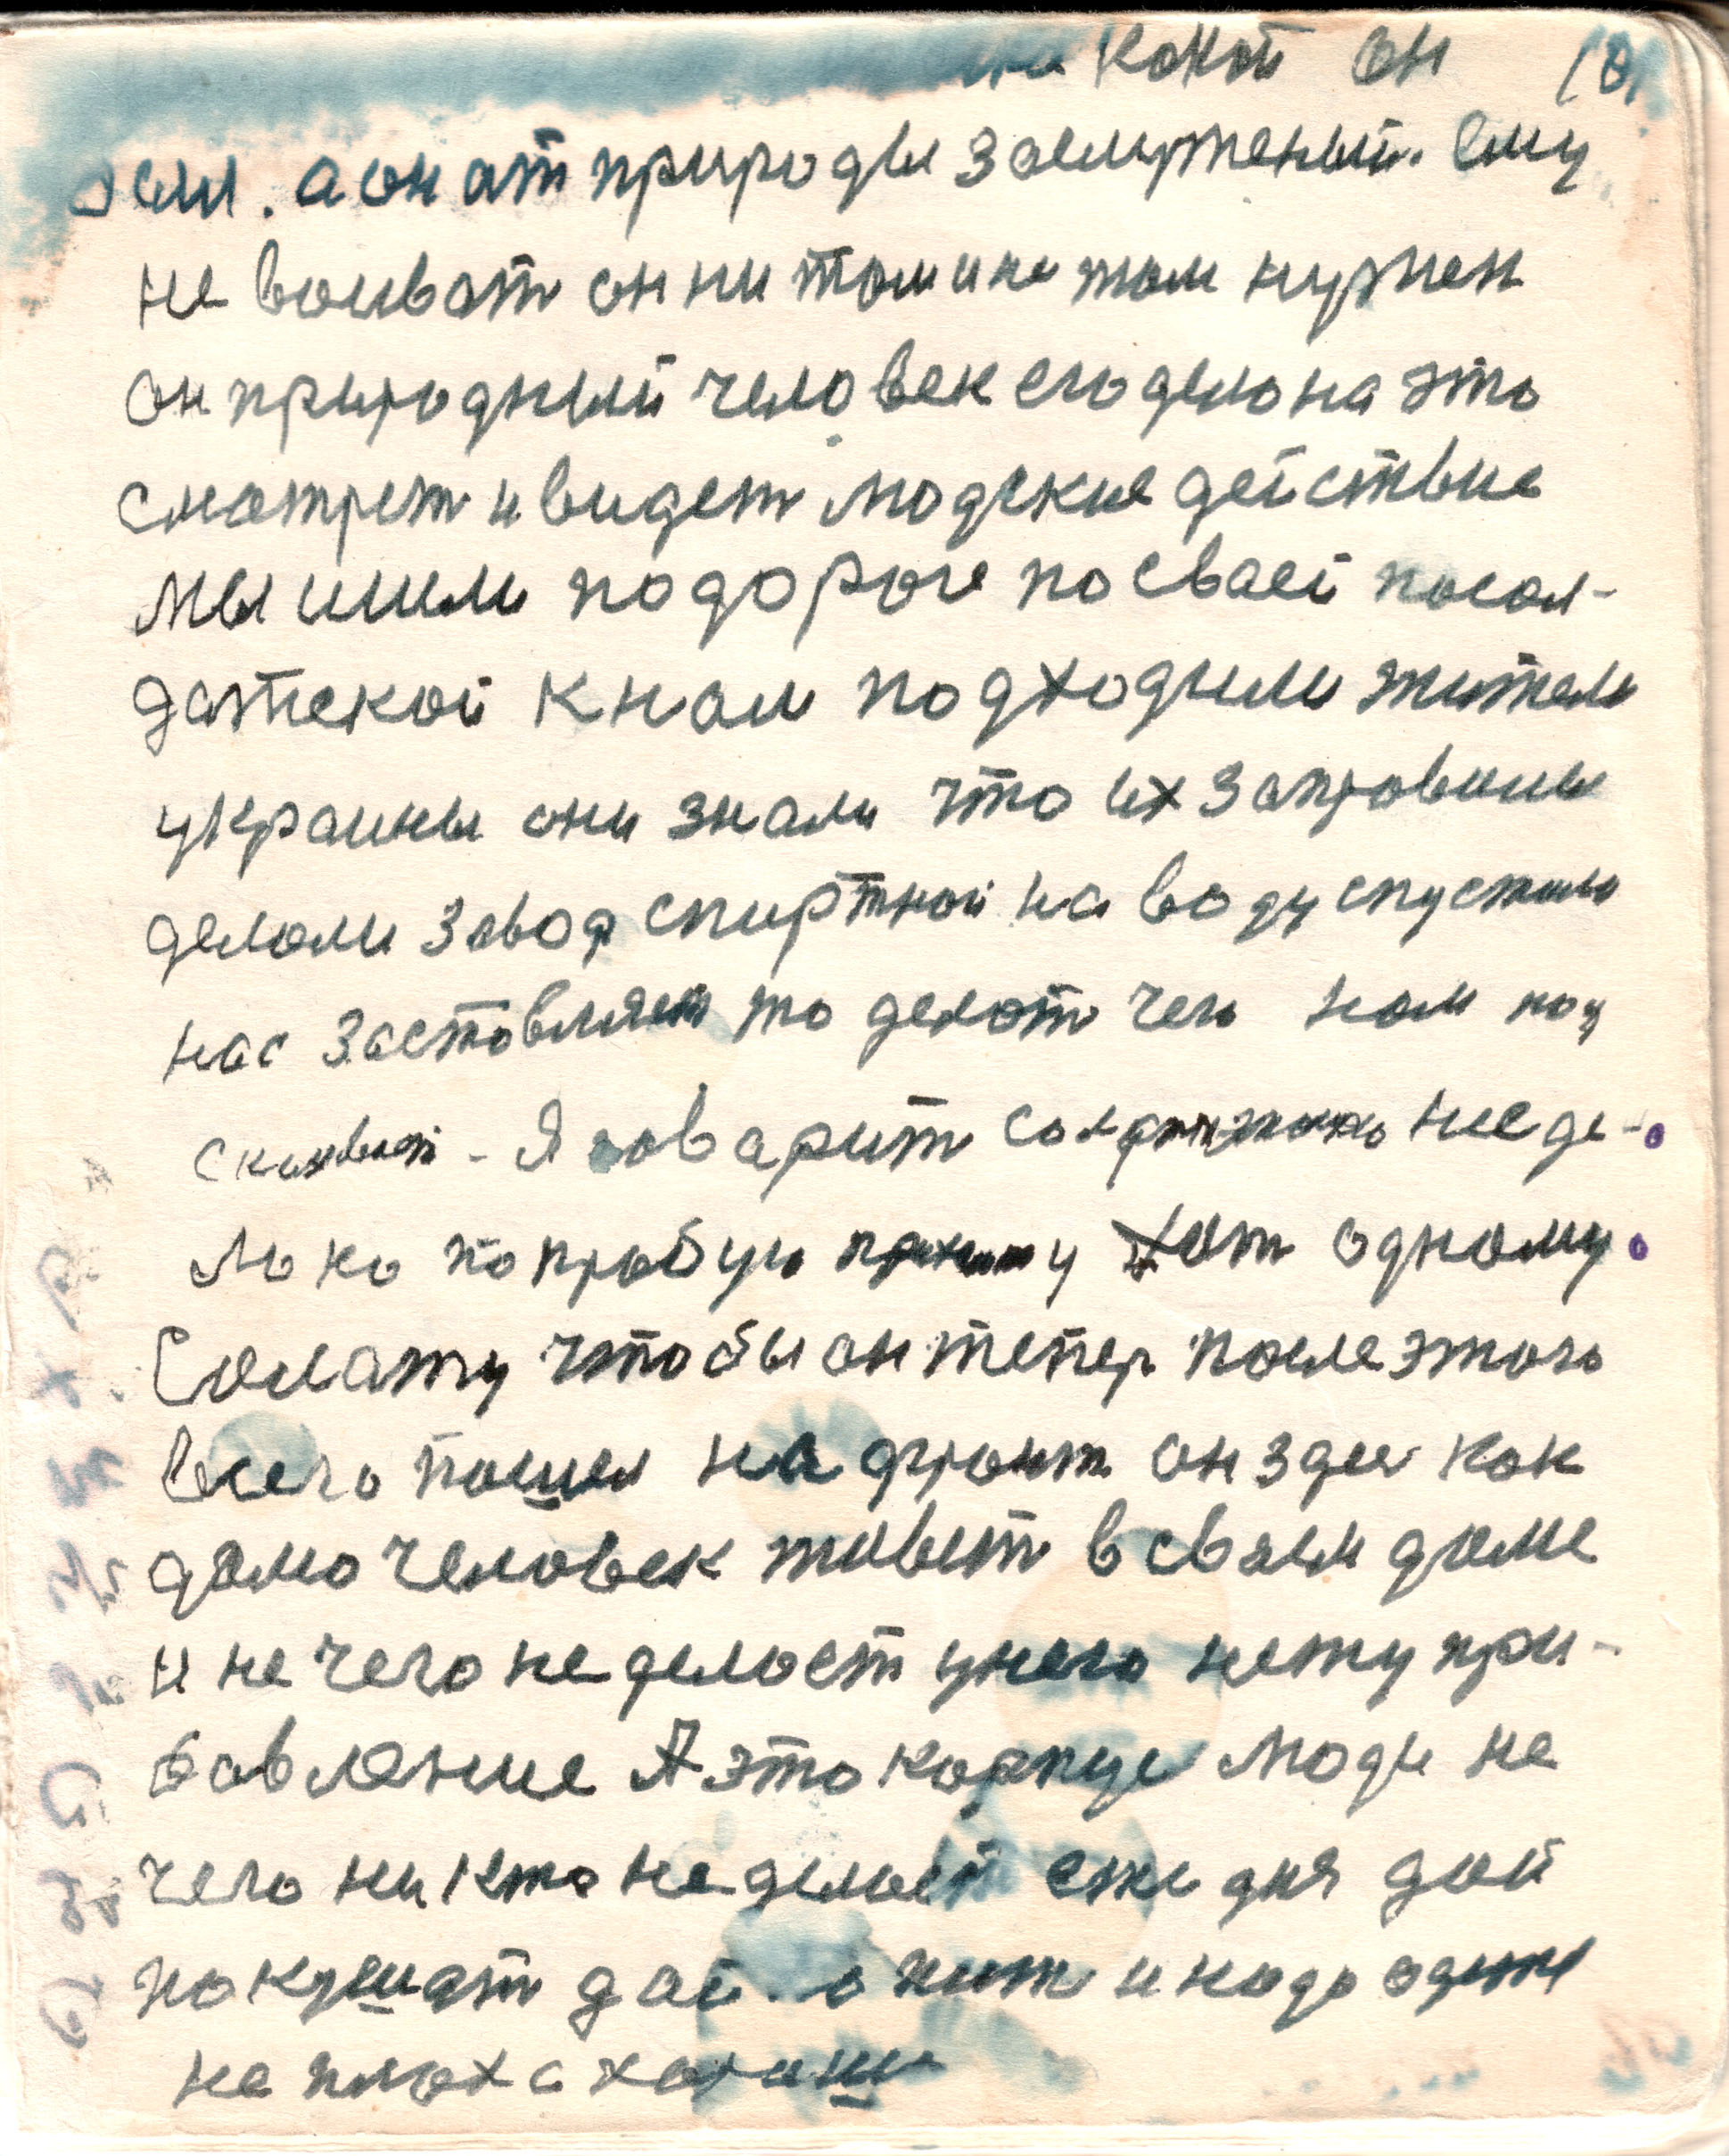 какой он 18
если. а он от природы заслуженый. ему
не воиват он ни там и не там нужен
он природный человек его дело на это
смотрет и видет людские действие
мы шли подороге по сваей посол-
датской к нам подходили жители
украины они знали что их заправилы
делали завод спиртной на воду спустили
нас заставляет то делат чего нам под
сказывает - Я говарит солдатика неде-
люко попробую пахаму хот одному
Солдату чтобы он тепер после этого
всего пошел на фронт он здес как
дамо человек живет в своем доме
и не чего не делает унего нету при-
бавление А это корпус люди не
чего никто не делает ежи дня дай
покушат дай. о пит и надо одет
не плохо а хорош